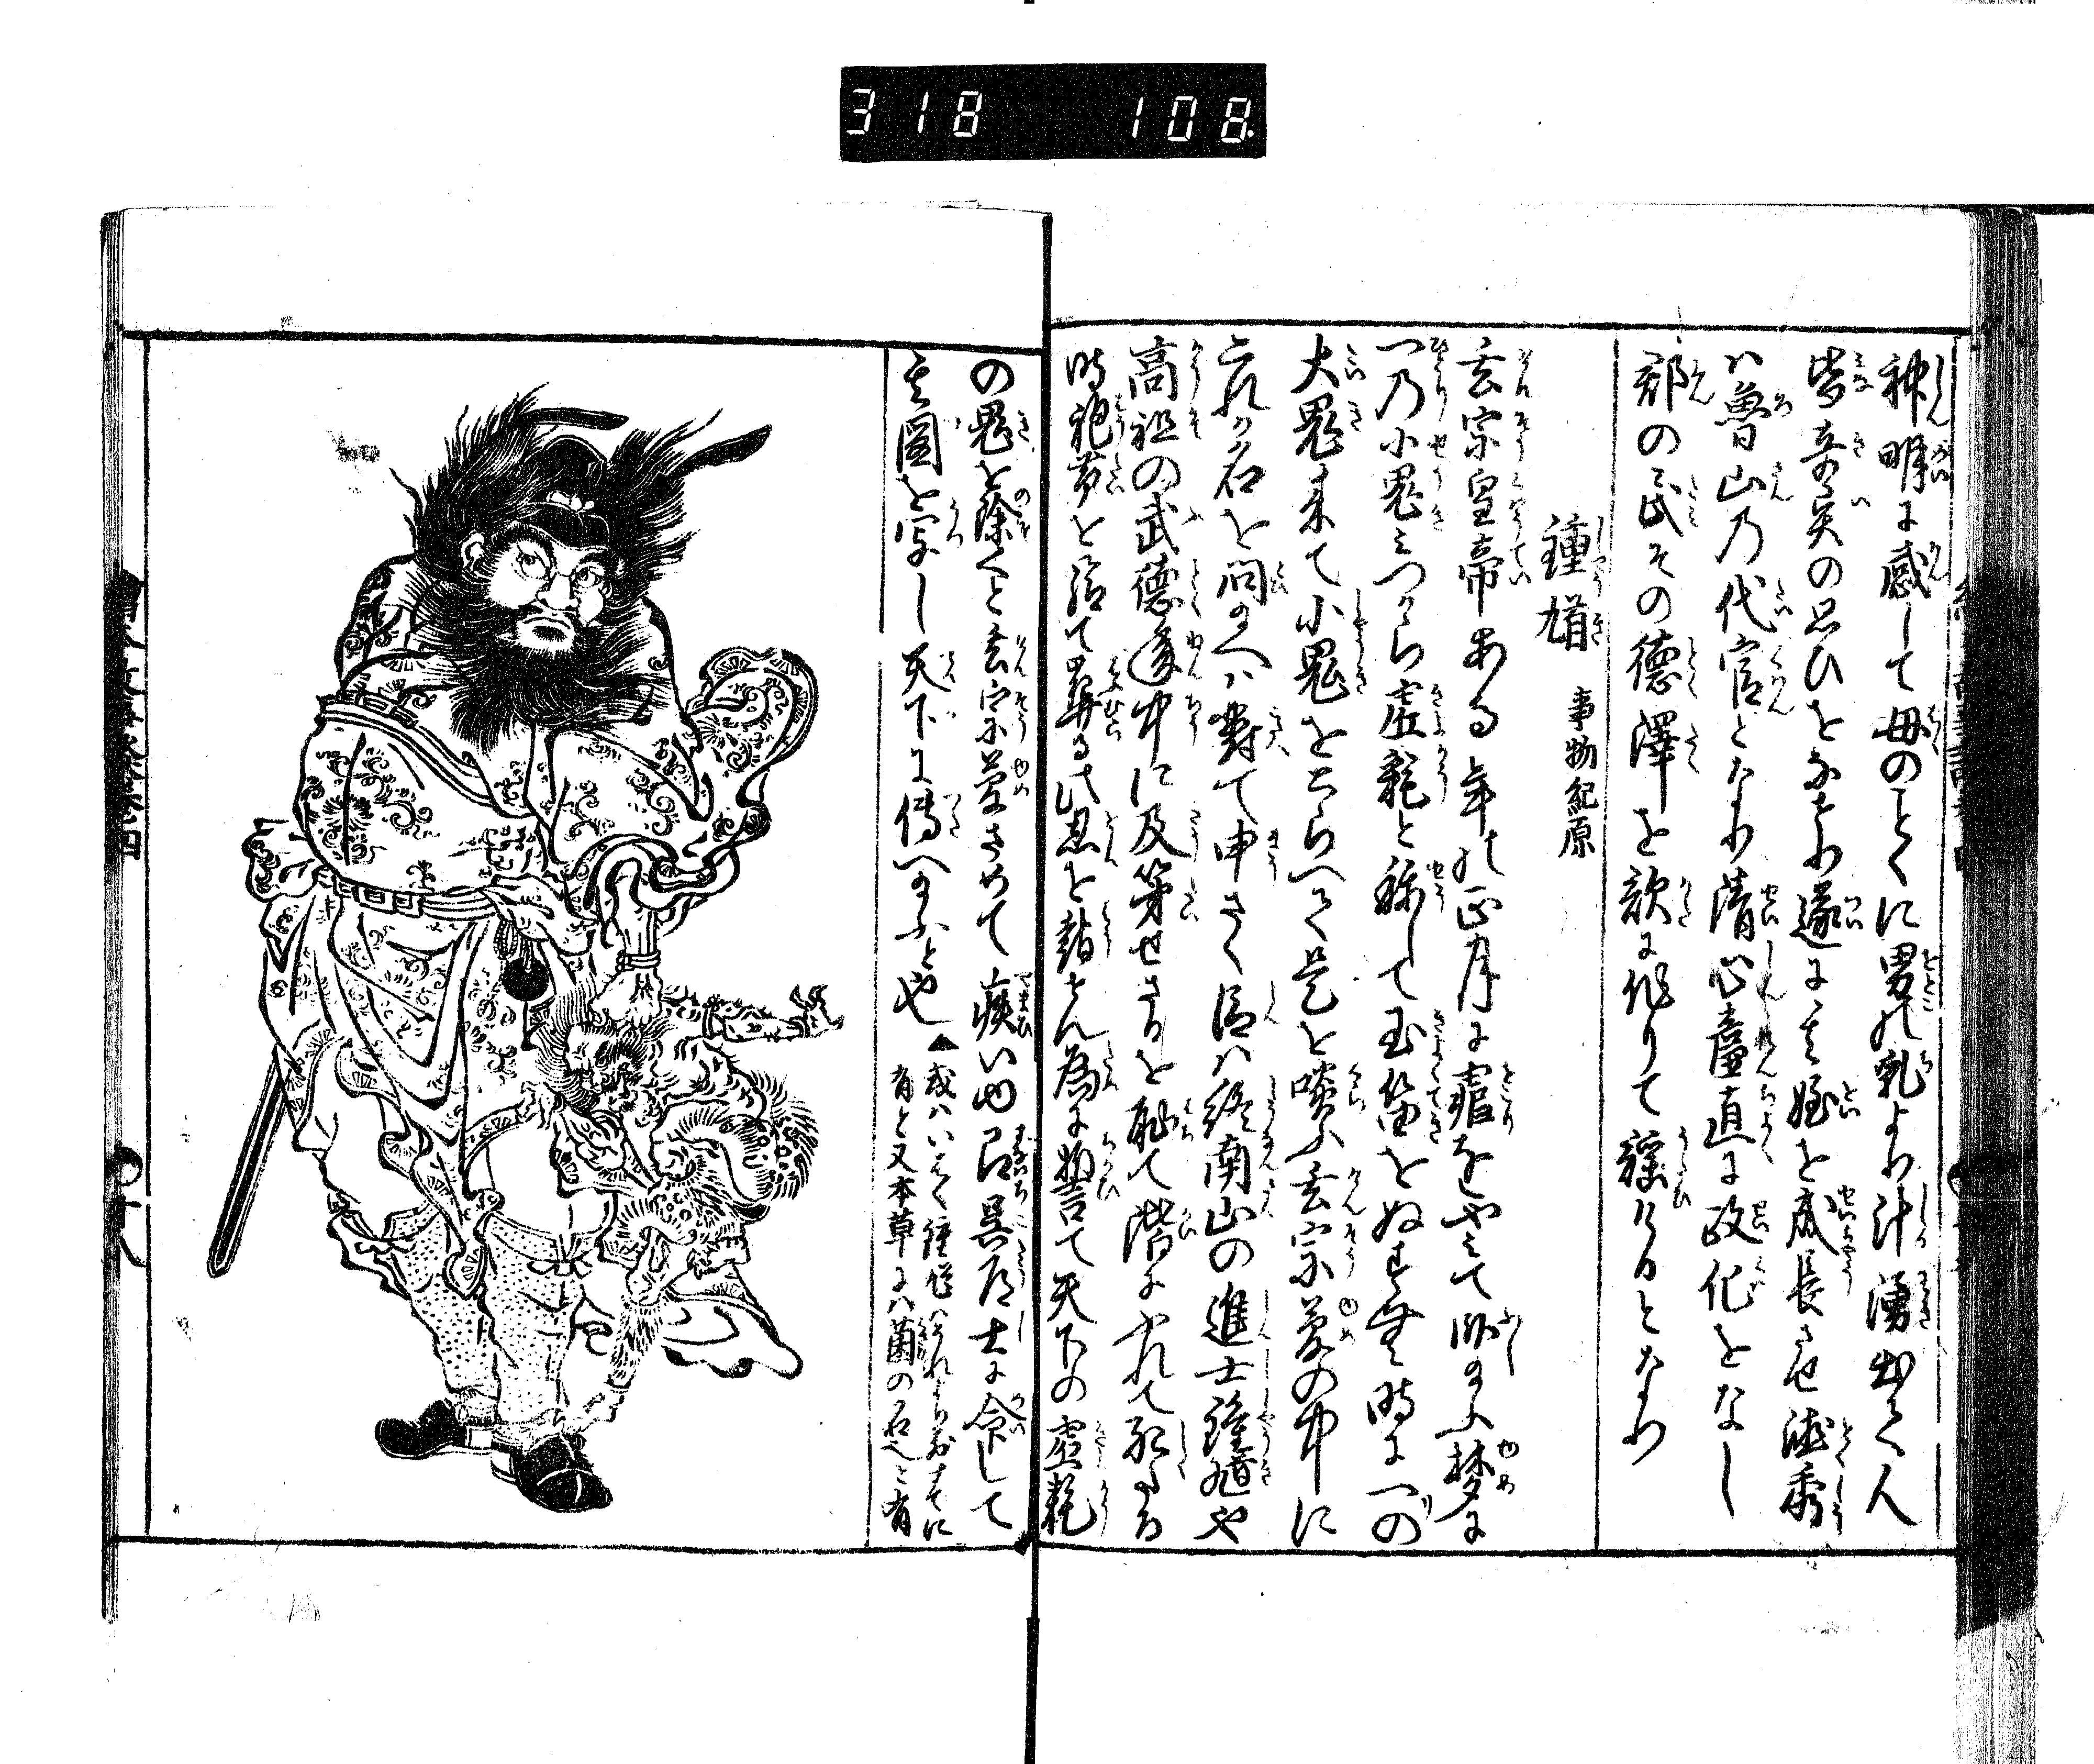 318 108.
神明に感して母のことくに男の乳より汁湧出て人
皆奇異の思ひをなせり遂に其姪を成長させ徳秀
ハ魯山の代官となり清心廉直に政化をなし
郡の民その徳澤を歌に作りて謡けるとなり
鍾馗 事物紀原
玄宗皇帝ある年の正月に瘧をやミて臥給ふ夢に
一の小鬼ミつから虚耗と称して玉笛をぬすむ時に一の
大鬼来て小鬼をとらへて是を啖ふ玄宗夢の中に
これか名を問給へハ對て申さく臣ハ終南山の進士鍾馗や
高祖の武徳年中に及第せさるを耻て階にふれて死する
時袍帯を給て葬る此恩を謝せん為に誓て天下の虚耗
の鬼を除くと玄宗夢さめて瘧いゆ即呉道士に命して
其圖を写し天下に傳へ給ふとや
▲或ハいはく鍾馗ハ
有と又本草にハ菌の名也と有